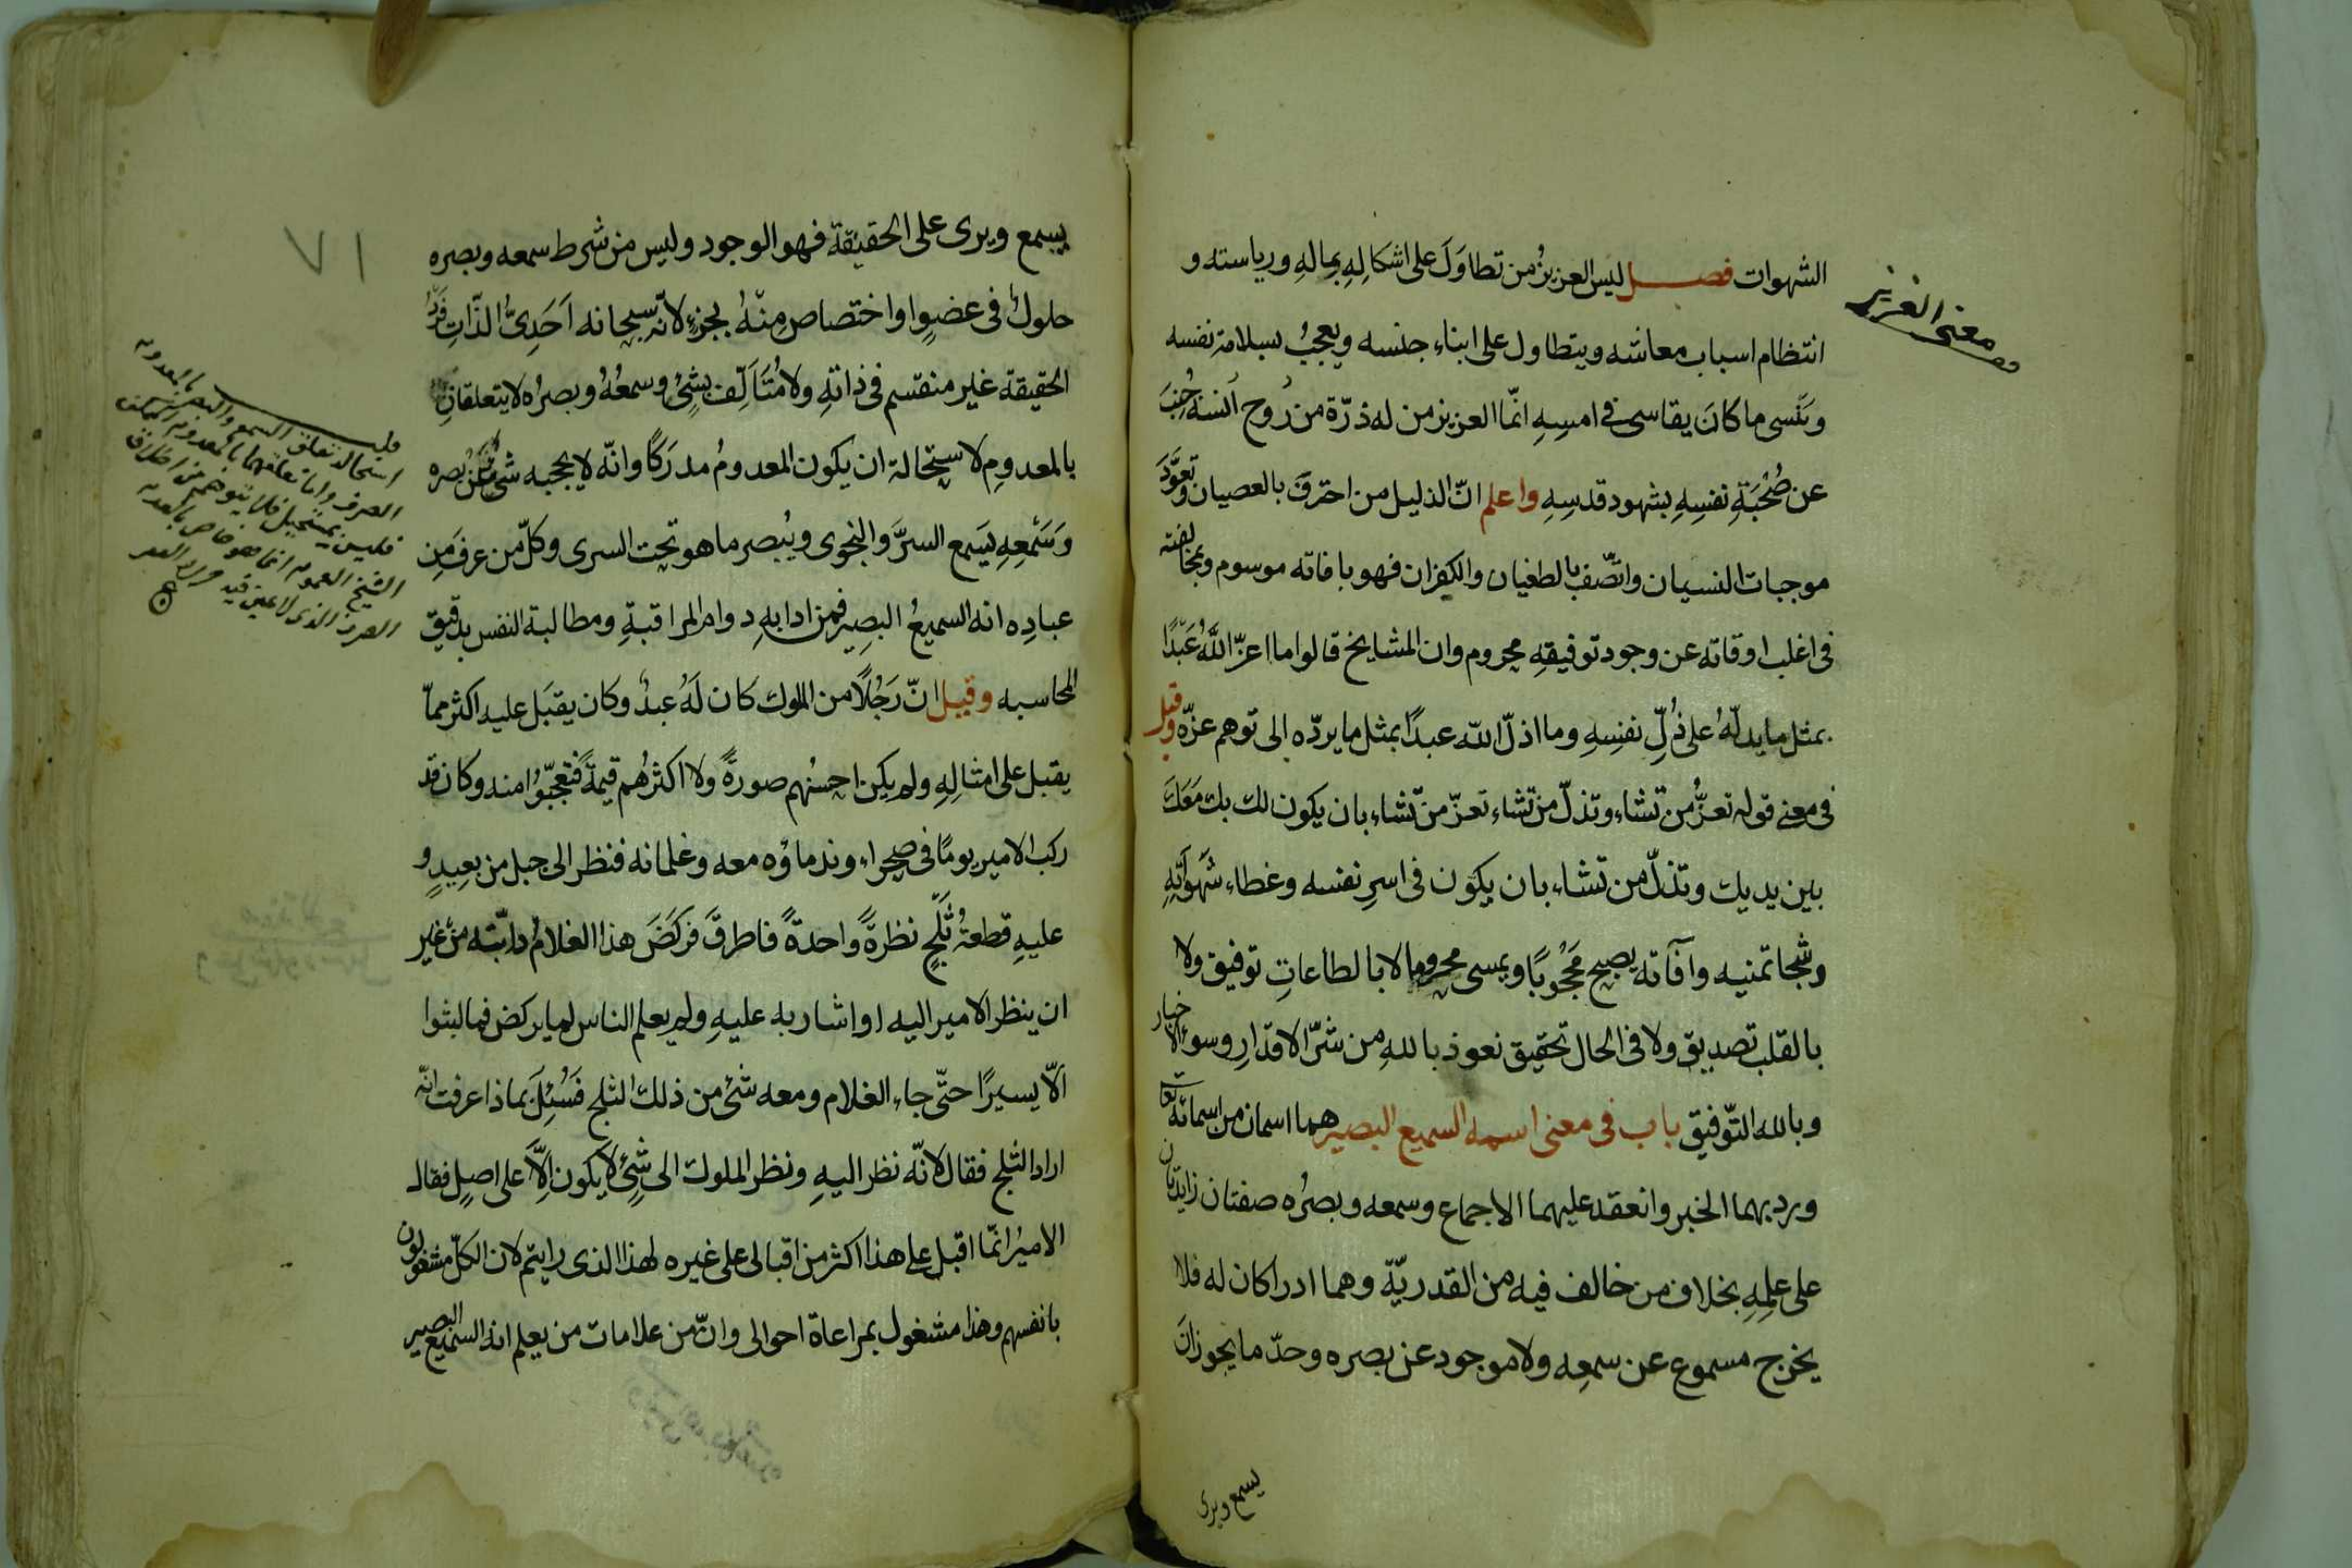 معنى العزيز
الشهوات فصل ليس العزيزُ من تطاوَلَ على اشكالِهِ بمالهِ ورياسته و
انتظام اسباب معاشه ويتطاول على ابناء جنسه ويعجبُ بسلامة نفسه
وينسى ما كانَ يقاسى فى امسِهِ انّما العزيز من له ذرّة من رُوح اُنسه
عن صُحْبَةِ نفسِهِ بشهود قدسِهِ واعلم انّ الذليل من احترقَ بالعصيان وتعوَّدَ
موجبات النسيان واتّصف بالطغيان والكفران فهو بافاته موسوم وبمخالفته
فى اغلب اوقاته عن وجود توفيقِهِ محروم وان المشايخ قالوا ما اعزّ اللّهُ عَبْدًا
بمثل ما يدلّهُ على ذُلِّ نفسِهِ وما اذلّ اللّه عبدًا بمثل ما يردّه الى توهم عزّه وقيل
فى معنى قوله تعزُّ من تشاء وتذلّ من تشاء تعزّ من تشاء بان يكون لك بك مَعَكَ
بين يديك وتذلّ من تشاء بان يكون فى اسرِ نفسه وغطاء شهَواتِهِ
تمنيه وآفاته يصبح مَحْجُوبًا ويمسى محروما لا بالطاعاتِ توفيق ولا
بالقلب تصديق ولا فى الحال تحقيق نعوذ باللهِ من شرّ الاقدارِ وسوء الاخبار
وبالله التّوفيق باب فى معنى اسمه السميع البصير هما اسمان من اسمائه تعا
ورد بهما الخبر وانعقد عليهما الاجماع وسمعه وبصرُه صفتان زايدتان
على علمِهِ بخلاف من خالف فيه من القدريّة وهما ادراكان له فلا
يخرج مسموع عن سمعِه ولا موجود عن بصره وحدّ ما يجوز اَن
يسمع ويرى
١٧
يسمع ويرى على الحقيقة فهو الوجود وليس من شرط سمعه وبصره
حلولٌ فى عضوٍ او اختصاص مِنهُ بجزءٍ لانّه سبحانه اَحَدِىُّ الذّاتِ فَردُ
الحقيقة غير منقسم فى ذاتهِ ولا مُتَاَلّف بشئٍ وسمعُهُ وبصرُه لا يتعلقانِ
بالمعدومِ لاستحالة ان يكون المعدومُ مدرَكًا وانّه لا يحجبه شئ عن بصره
وَسَمْعِهِ يَسمع السرَّ والنجوى ويُبصر ما هو تحت السرى وكلّ من عرف من
عبادِه انه السميعُ البصير فمن ادابهِ دوام المراقبةِ ومطالبة النفس بدقيق
المحاسبه وقيل انّ رَجُلًا من الملوك كان لَهُ عبدٌ وكان يقبَل عليه اكثر ممّا
يقبل على امثالِهِ ولم يكن احسنهم صورةً ولا اكثرُهم قيمةً فتعجّبُوا منه وكان قد
ركب الامير يومًا فى صحراء وندماؤه معه وغلمانه فنظر الى جبل من بعِيدٍ و
عليهِ قطعةُ ثَلجٍ نظرةً واحدةً فاطرقَ فركَضَ هذا الغلامُ دابّته من غير
ان ينظر الامير اليه او اشار به عليهِ ولم يعلم الناس لما يركض فما لبثوا
الّا يسيرًا حتّى جاء الغلام ومعه شئ من ذلك الثلج فَسُئِلَ بماذا عرفت انّه
اراد الثلج فقال لانّه نظر اليهِ ونظر الملوك الى شئٍ لا يكون الّا على اصلٍ فقال
الاميرُ انّما اقبل على هذا اكثر من اقبالى على غيره لهذا الذى رايتم لان الكلّ مشغولون
بانفسهم وهذا مشغول بمراعاة احوالى وانّ من علامات من يعلم انه السّميع البصير
استحالة تعلق السمع والبصر بالمعدوم